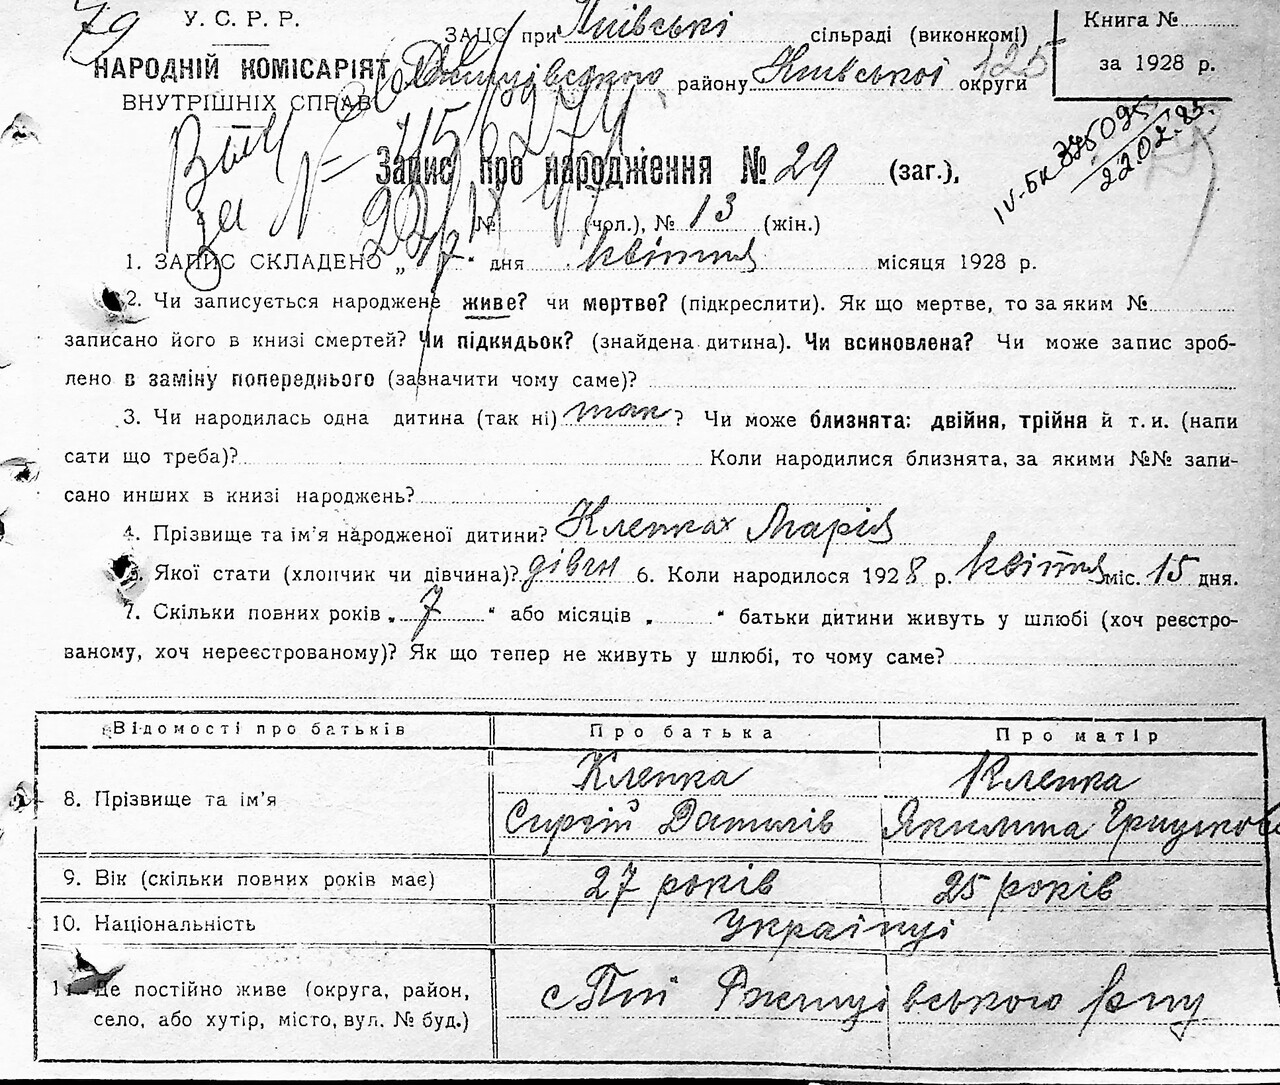 79
У. С. Р. Р.
НАРОДНІЙ КОМІСАРІЯТ
ВНУТРІШНІХ СПРАВ
ЗАЦС при Пиівські сільраді (виконкомі)
Ржищівського району Київської округи
125
Книга №
за 1928 р.
IV-БК 375095
22.02.83.
Запис про народження № 29 (заг.),
№ (чол.), № 13 (жін.)
1. ЗАПИС СКЛАДЕНО „ “ дня квітня місяця 1928 р.
2. Чи записується народжене живе? чи мертве? (підкреслити). Як що мертве, то за яким №
записано його в книзі смертей? Чи підкидьок? (знайдена дитина). Чи всиновлена? Чи може запис зроб-
лено в заміну попереднього (зазначити чому саме)?
3. Чи народилась одна дитина (так ні) так ? Чи може близнята: двійня, трійня й т. и. (напи
сати що треба)? Коли народилися близнята, за якими №№ запи-
сано инших в книзі народжень?
4. Прізвище та ім’я народженої дитини? Клепка Марія
5. Якої статі (хлопчик чи дівчина)? дівчн 6. Коли народилося 1928 р. квітня міс. 15 дня.
7. Скільки повних років „ 7 “ або місяців „ “ батьки дитини живуть у шлюбі (хоч реєстро-
ваному, хоч нереєстрованому)? Як що тепер не живуть у шлюбі, то чому саме?
Відомості про батьків Про батька Про матір
8. Прізвище та ім’я
Клепка Клепка
Сиргій Данилів Якилина Грицькова
9. Вік (скільки повних років має) 27 років 25 років
10. Національність Українці
11. Де постійно живе (округа, район,
село, або хутір, місто, вул. № буд.)
с Пиї Ржищівського р-ну